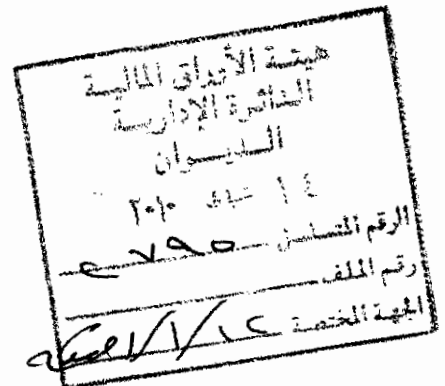 هيئة الأوراق المالية
الدائرة الإدارية
الديوان
١٤ شباط ٢٠١٠
الرقم المتسلسل
رقم الملف
الجهة المختصة